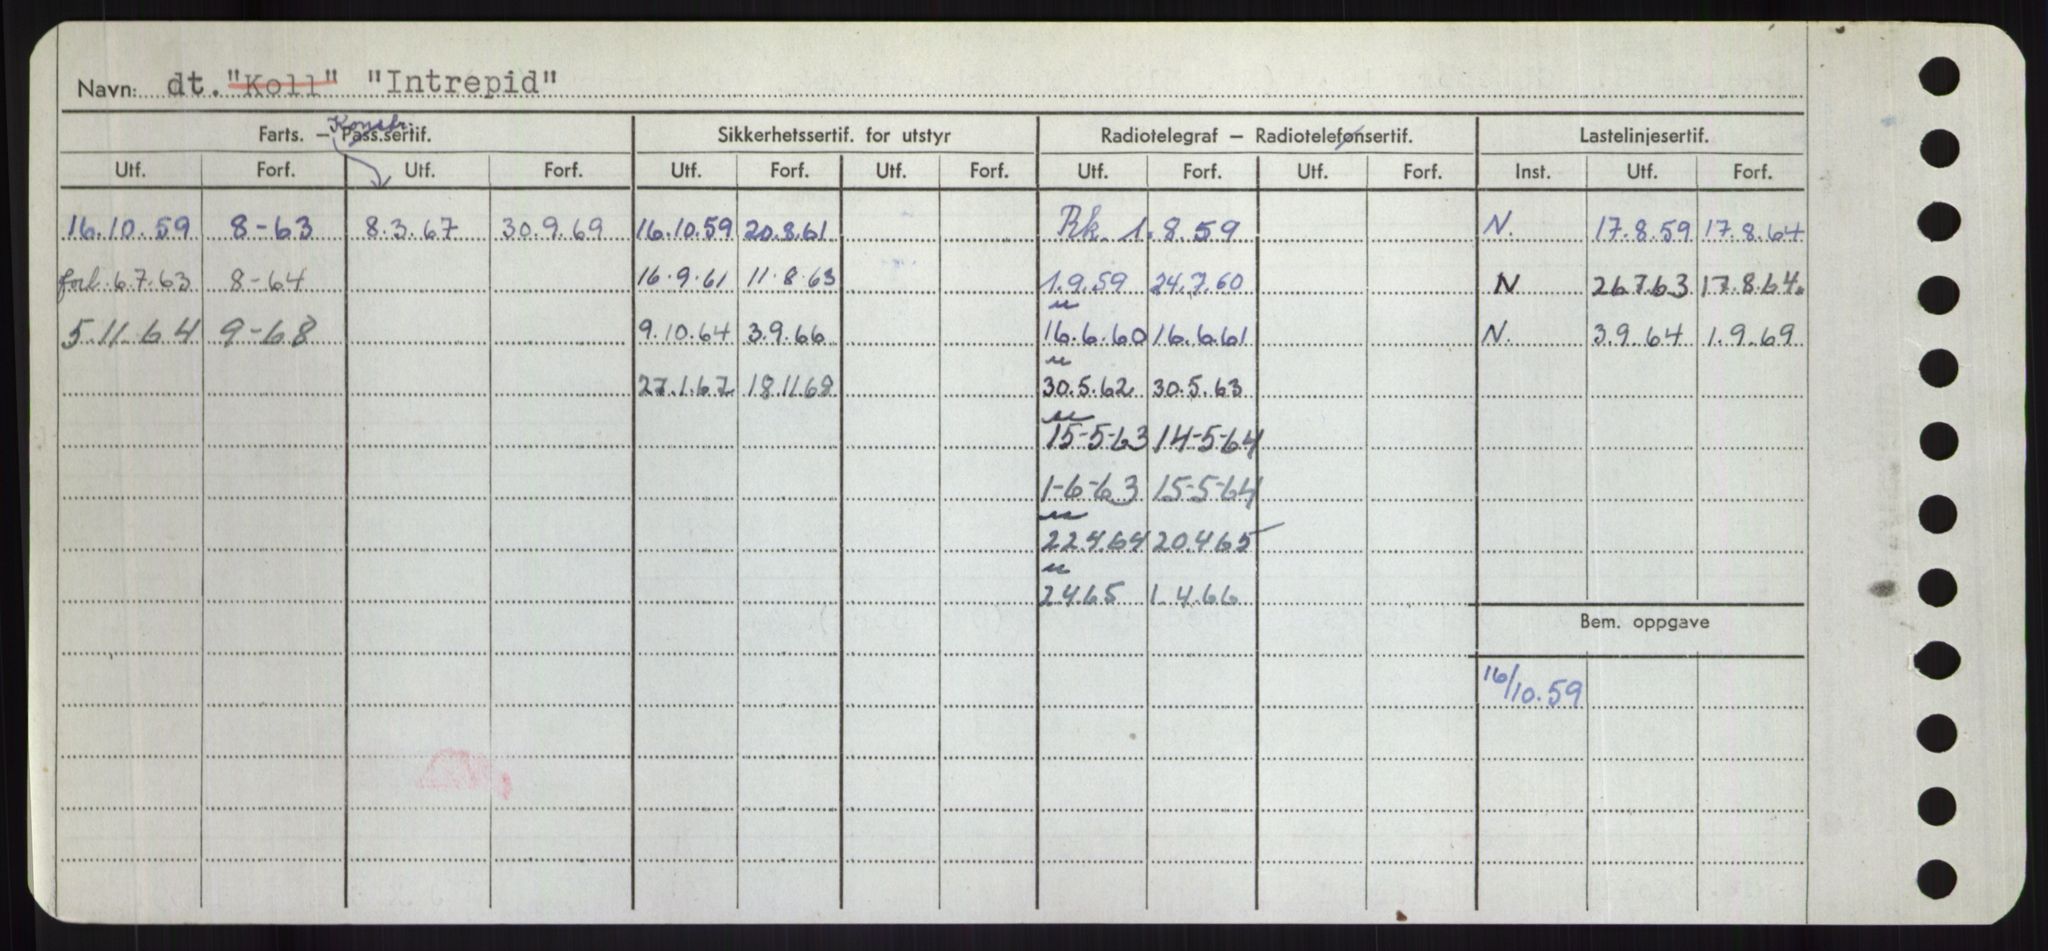 Navn: dt. "Koll" "Intrepid"
Konstr.
Farts. — Pass.sertif. Sikkerhetssertif. for utstyr Radiotelegraf — Radiotelefonsertif. Lastelinjesertif.
Utf. Forf. Utf. Forf. Utf. Forf. Utf. Forf. Utf. Forf. Utf. Forf. Inst. Utf. Forf.
16.10.59 8-63 8.3.67 30.9.69 16.10.59 20.8.61 Rk. 1.8.59 N. 17.8.59 17.8.64
forl. 6.7.63 8-64 16.9.61 11.8.63 1.9.59 24.7.60 N 26.7.63 17.8.64.
5.11.64 9-68 9.10.64 3.9.66 16.6.60 16.6.61 N. 3.9.64 1.9.69
27.1.67 18.11.68 30.5.62 30.5.63
15-5-63 14-5-64
1-6-63 15-5-64
22.4.64 20.4.65
2.4.65 1.4.66
Bem. oppgave
16/10.59